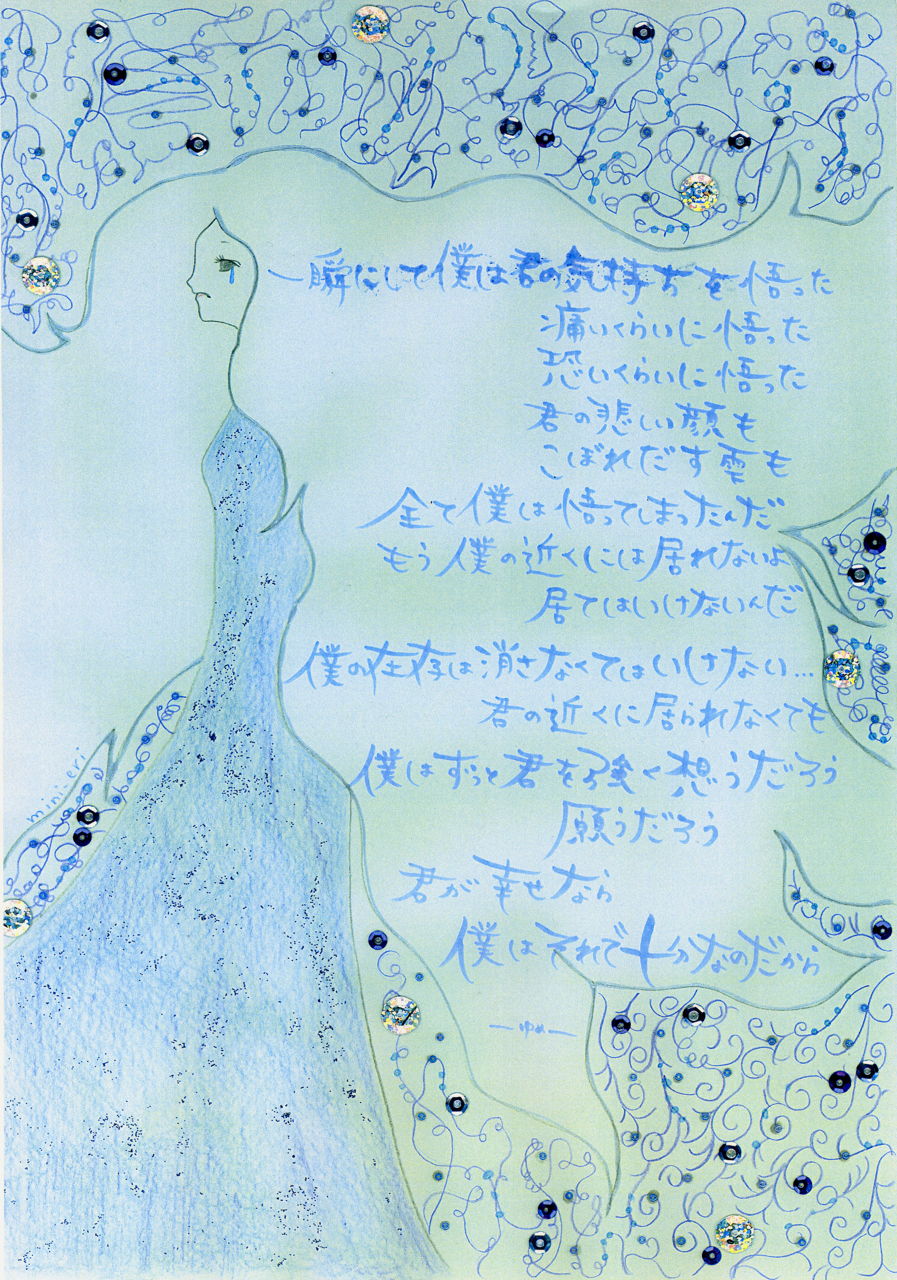 一瞬にして僕は君の気持ちを悟った
痛いくらいに悟った
恐いくらいに悟った
君の悲しい顔も
こぼれだす雫も
全て僕は悟ってしまったんだ
もう僕の近くには居れないよ
居てはいけないんだ
僕の在存は消さなくてはいけない…
君の近くに居られなくても
僕はずっと君を強く想うだろう
願うだろう
君が幸せなら
僕はそれで十分なのだから
―ゆめ―
mini-eri